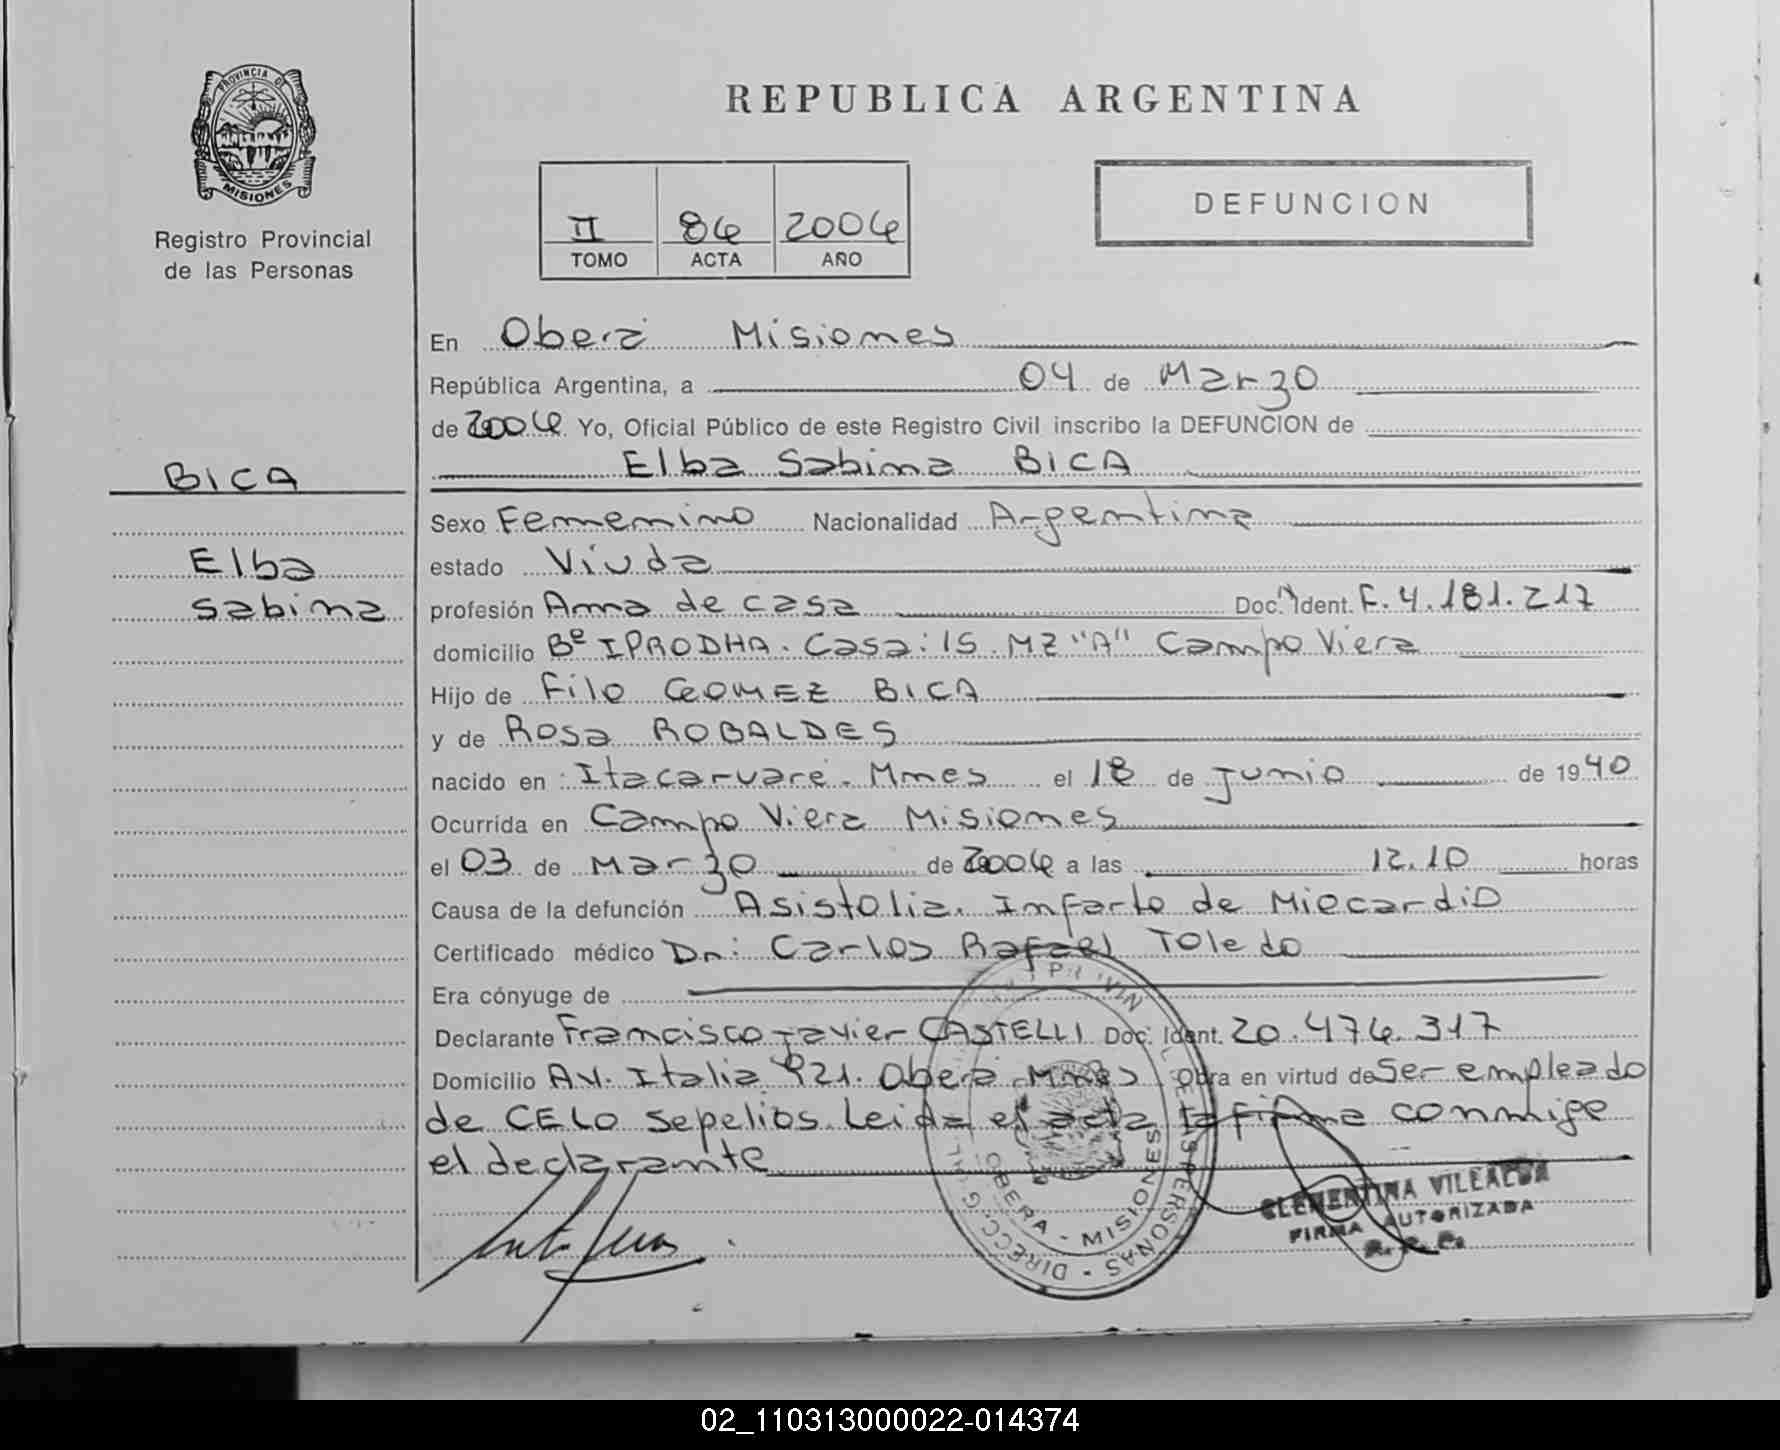 PROVINCIA DE
MISIONES
Registro Provincial
de las Personas
REPUBLICA ARGENTINA
II 86 2006
TOMO ACTA AÑO
DEFUNCION
En Oberá Misiones
República Argentina, a 04 de Marzo
de 2006 Yo, Oficial Público de este Registro Civil inscribo la DEFUNCION de
Elba Sabina BICA
BICA
Elba
Sabina
Sexo Femenino Nacionalidad Argentina
estado Viuda
profesión Ama de casa Doc. Ident. F.4.181.217
domicilio Bº IPRODHA. Casa: 15. MZ "A" Campo Viera
Hijo de Filo GOMEZ BICA
y de Rosa ROBALDES
nacido en : Itacaruaré. Mnes el 18 de Junio de 1940
Ocurrida en Campo Viera Misiones
el 03 de Marzo de 2006 a las 12.10 horas
Causa de la defunción Asistolia. Infarto de Miocardio
Certificado médico Dr: Carlos Rafael Toledo
Era cónyuge de
Declarante Francisco Javier CASTELLI Doc. Ident. 20.476.317
Domicilio AV. Italia 921. Oberá Mnes Obra en virtud de Ser empleado
de CELO Sepelios. Leida el acta la firma conmigo
el declarante
OBERA - MISIONES
PERSONAS - DIRECC. G
CLEMENTINA VILLALBA
FIRMA AUTORIZADA
R. P. P.
02_110313000022-014374